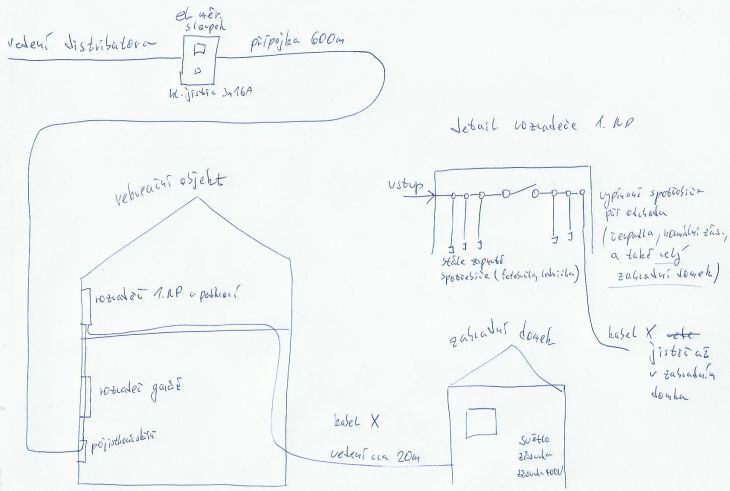 el. měr.
sloupek
vedení distributora
přípojka 600m
hl. jistič 3x16A
detail rozvaděče 1. NP
rekreační objekt
vstup
vypínané spotřebiče
při odchodu
(čerpadla, normální zás.,
a také celý
zahradní domek)
stále zapnuté
spotřebiče (fotobuňky, lednička)
rozvaděč 1. NP a podkroví
zahradní domek
kabel X
jistič až
v zahradním
domku
rozvaděč garáž
pojistková skříň
kabel X
vedení cca 20m
světlo
zásuvka
zásuvka 400V